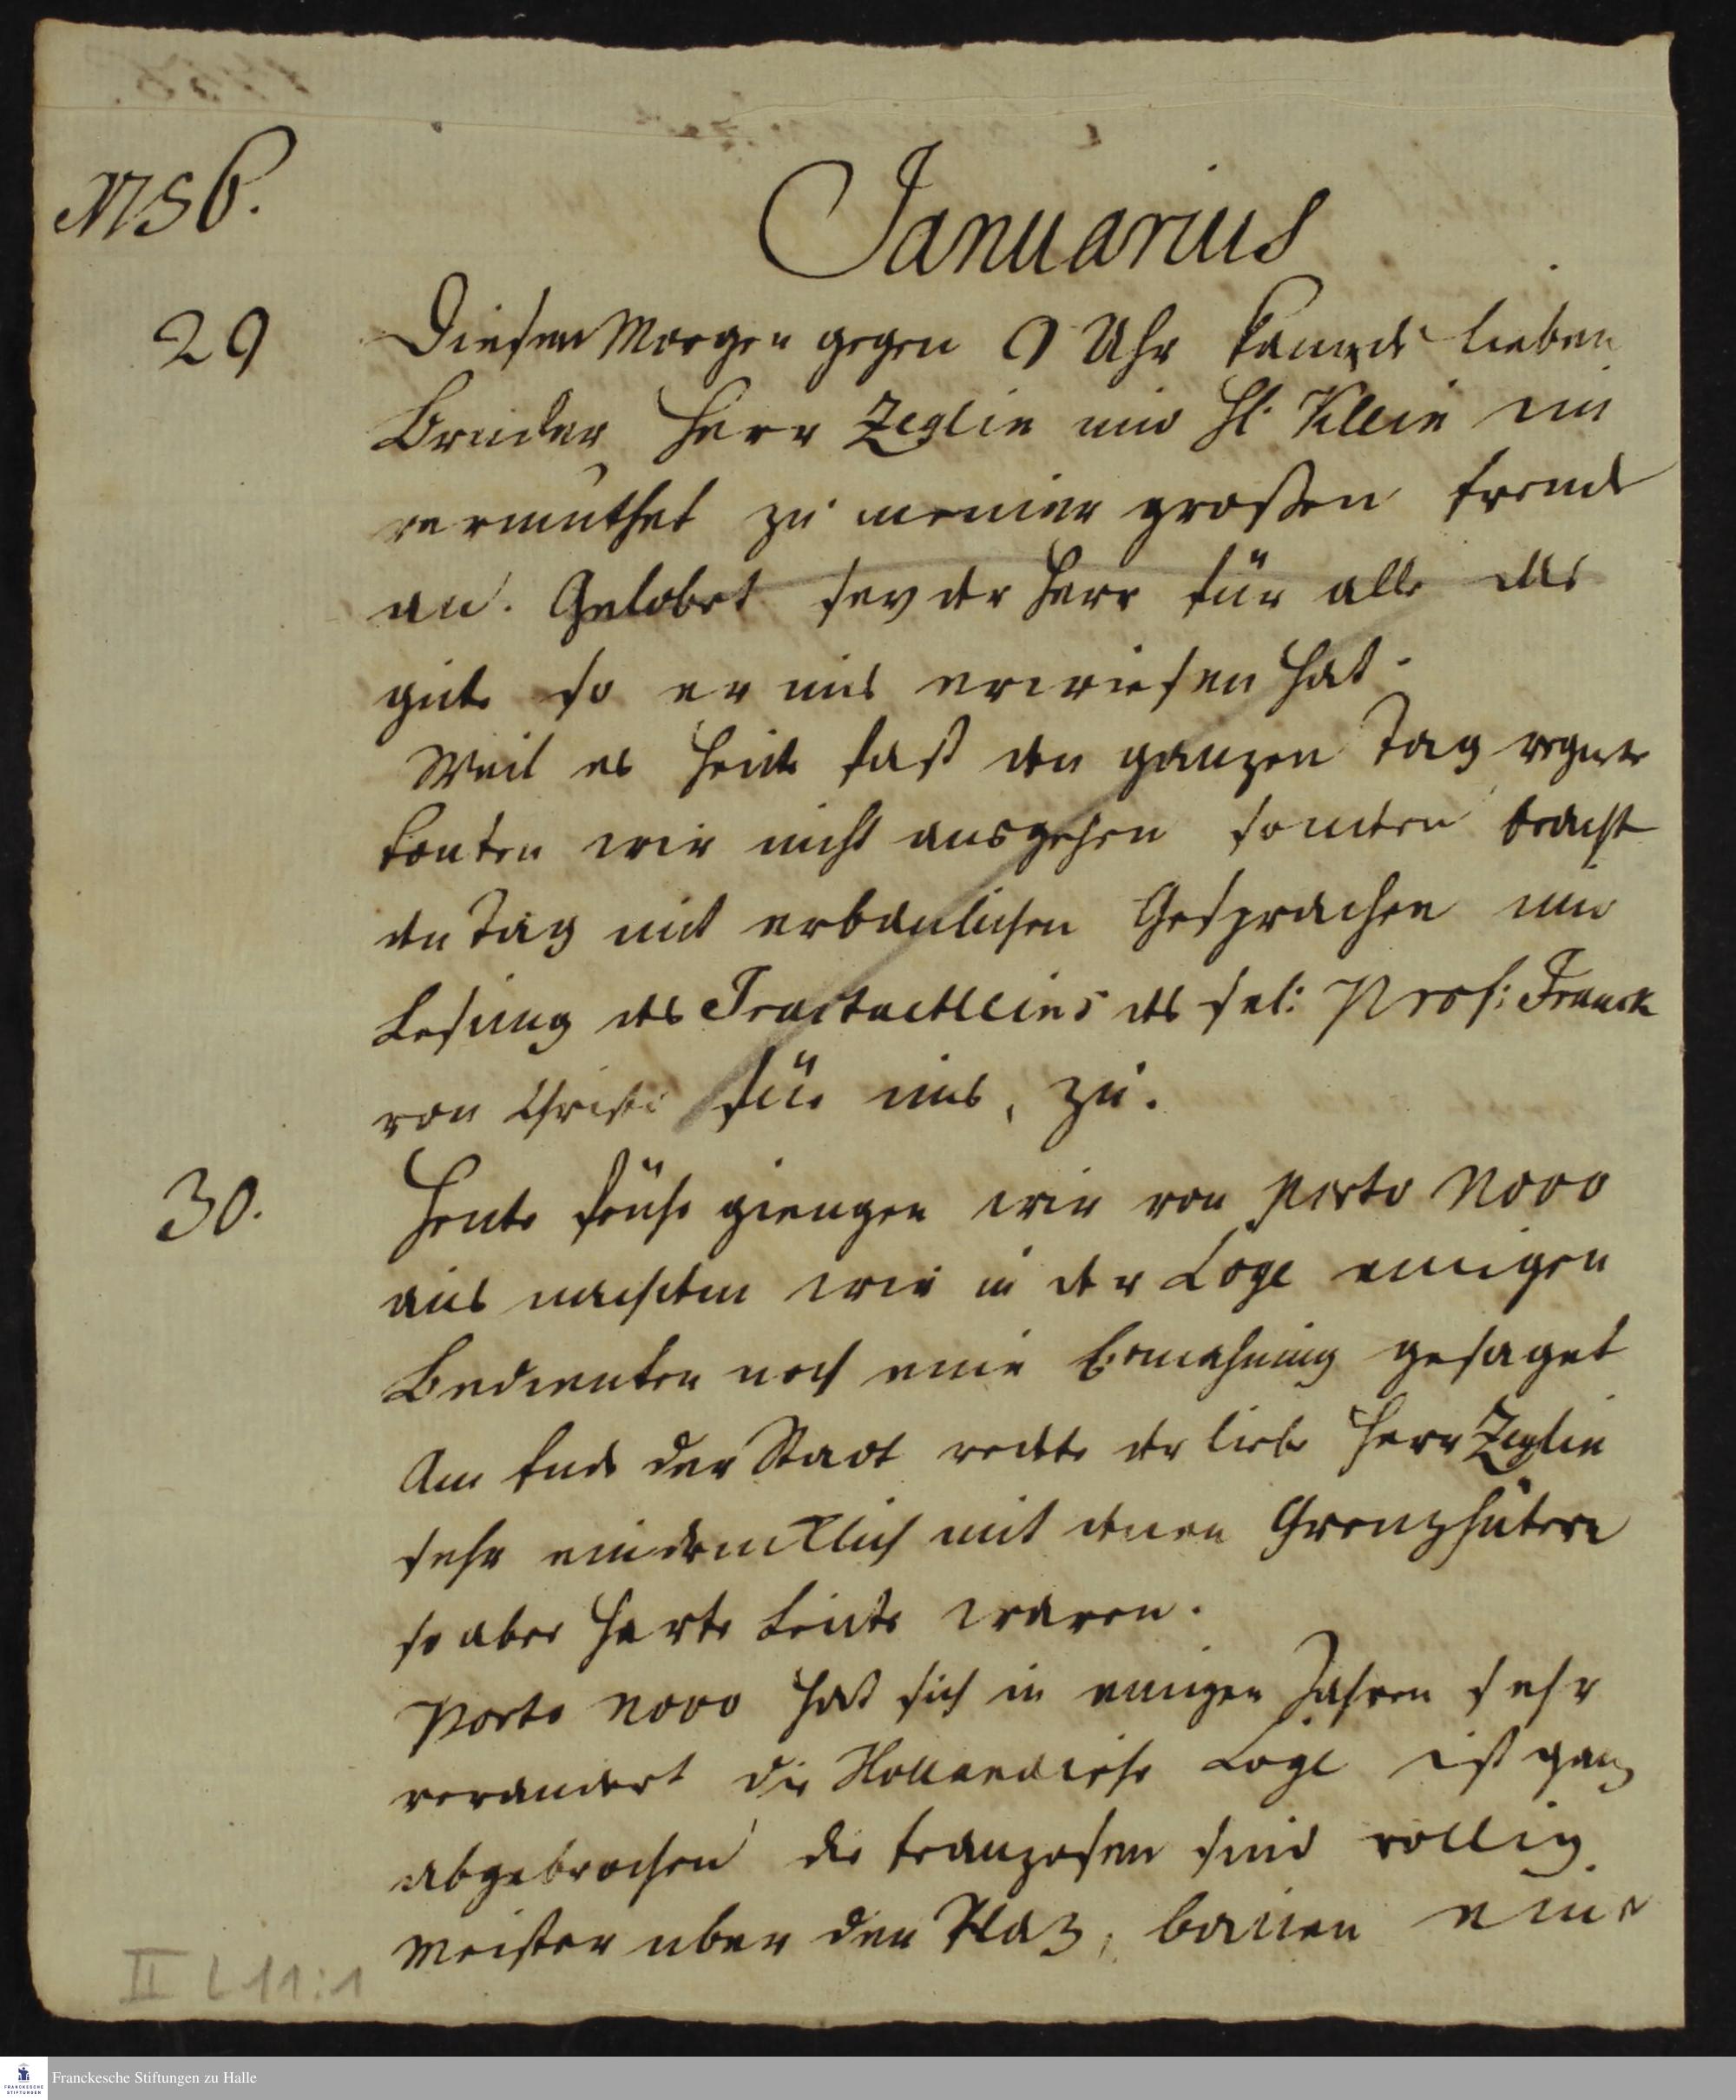 1756.
Januarius
29 Diesen Morgen gegen 9 Uhr kamen die lieben
Brüder Herr Zeglin und H. Klein un
vermuthet zu meiner großen freude
an. Gelobet sey der Herr für alle das
gute so er uns erwiesen hat.
Weil es heute fast den ganzen Tag regnete
konten wir nicht ausgehen sondern
den Tag mit erbaulichen Gesprachen und
Lesung des Tractaetleins des sel: Prof: Franck
von Christo für uns, zu.
30. Heute frühe giengen wir von Porto Novo
aus nachdem wir in der Loge einigen
Bedienten noch eine Ermahnung gesaget
Am Ende der Stadt redete der liebe Herr Zeglin
sehr eindrucklich mit denen Grenzhütern
so aber harte Leute waren.
Porto Novo hat sich in einigen Jahren sehr
verandert die Hollandische Loge ist ganz
abgebrochen die Franzosen sind vollig
Meister uber den Plaz, bauen eine
II L 11:1
Franckesche Stiftungen zu Halle
FRANCKESCHE
STIFTUNGEN